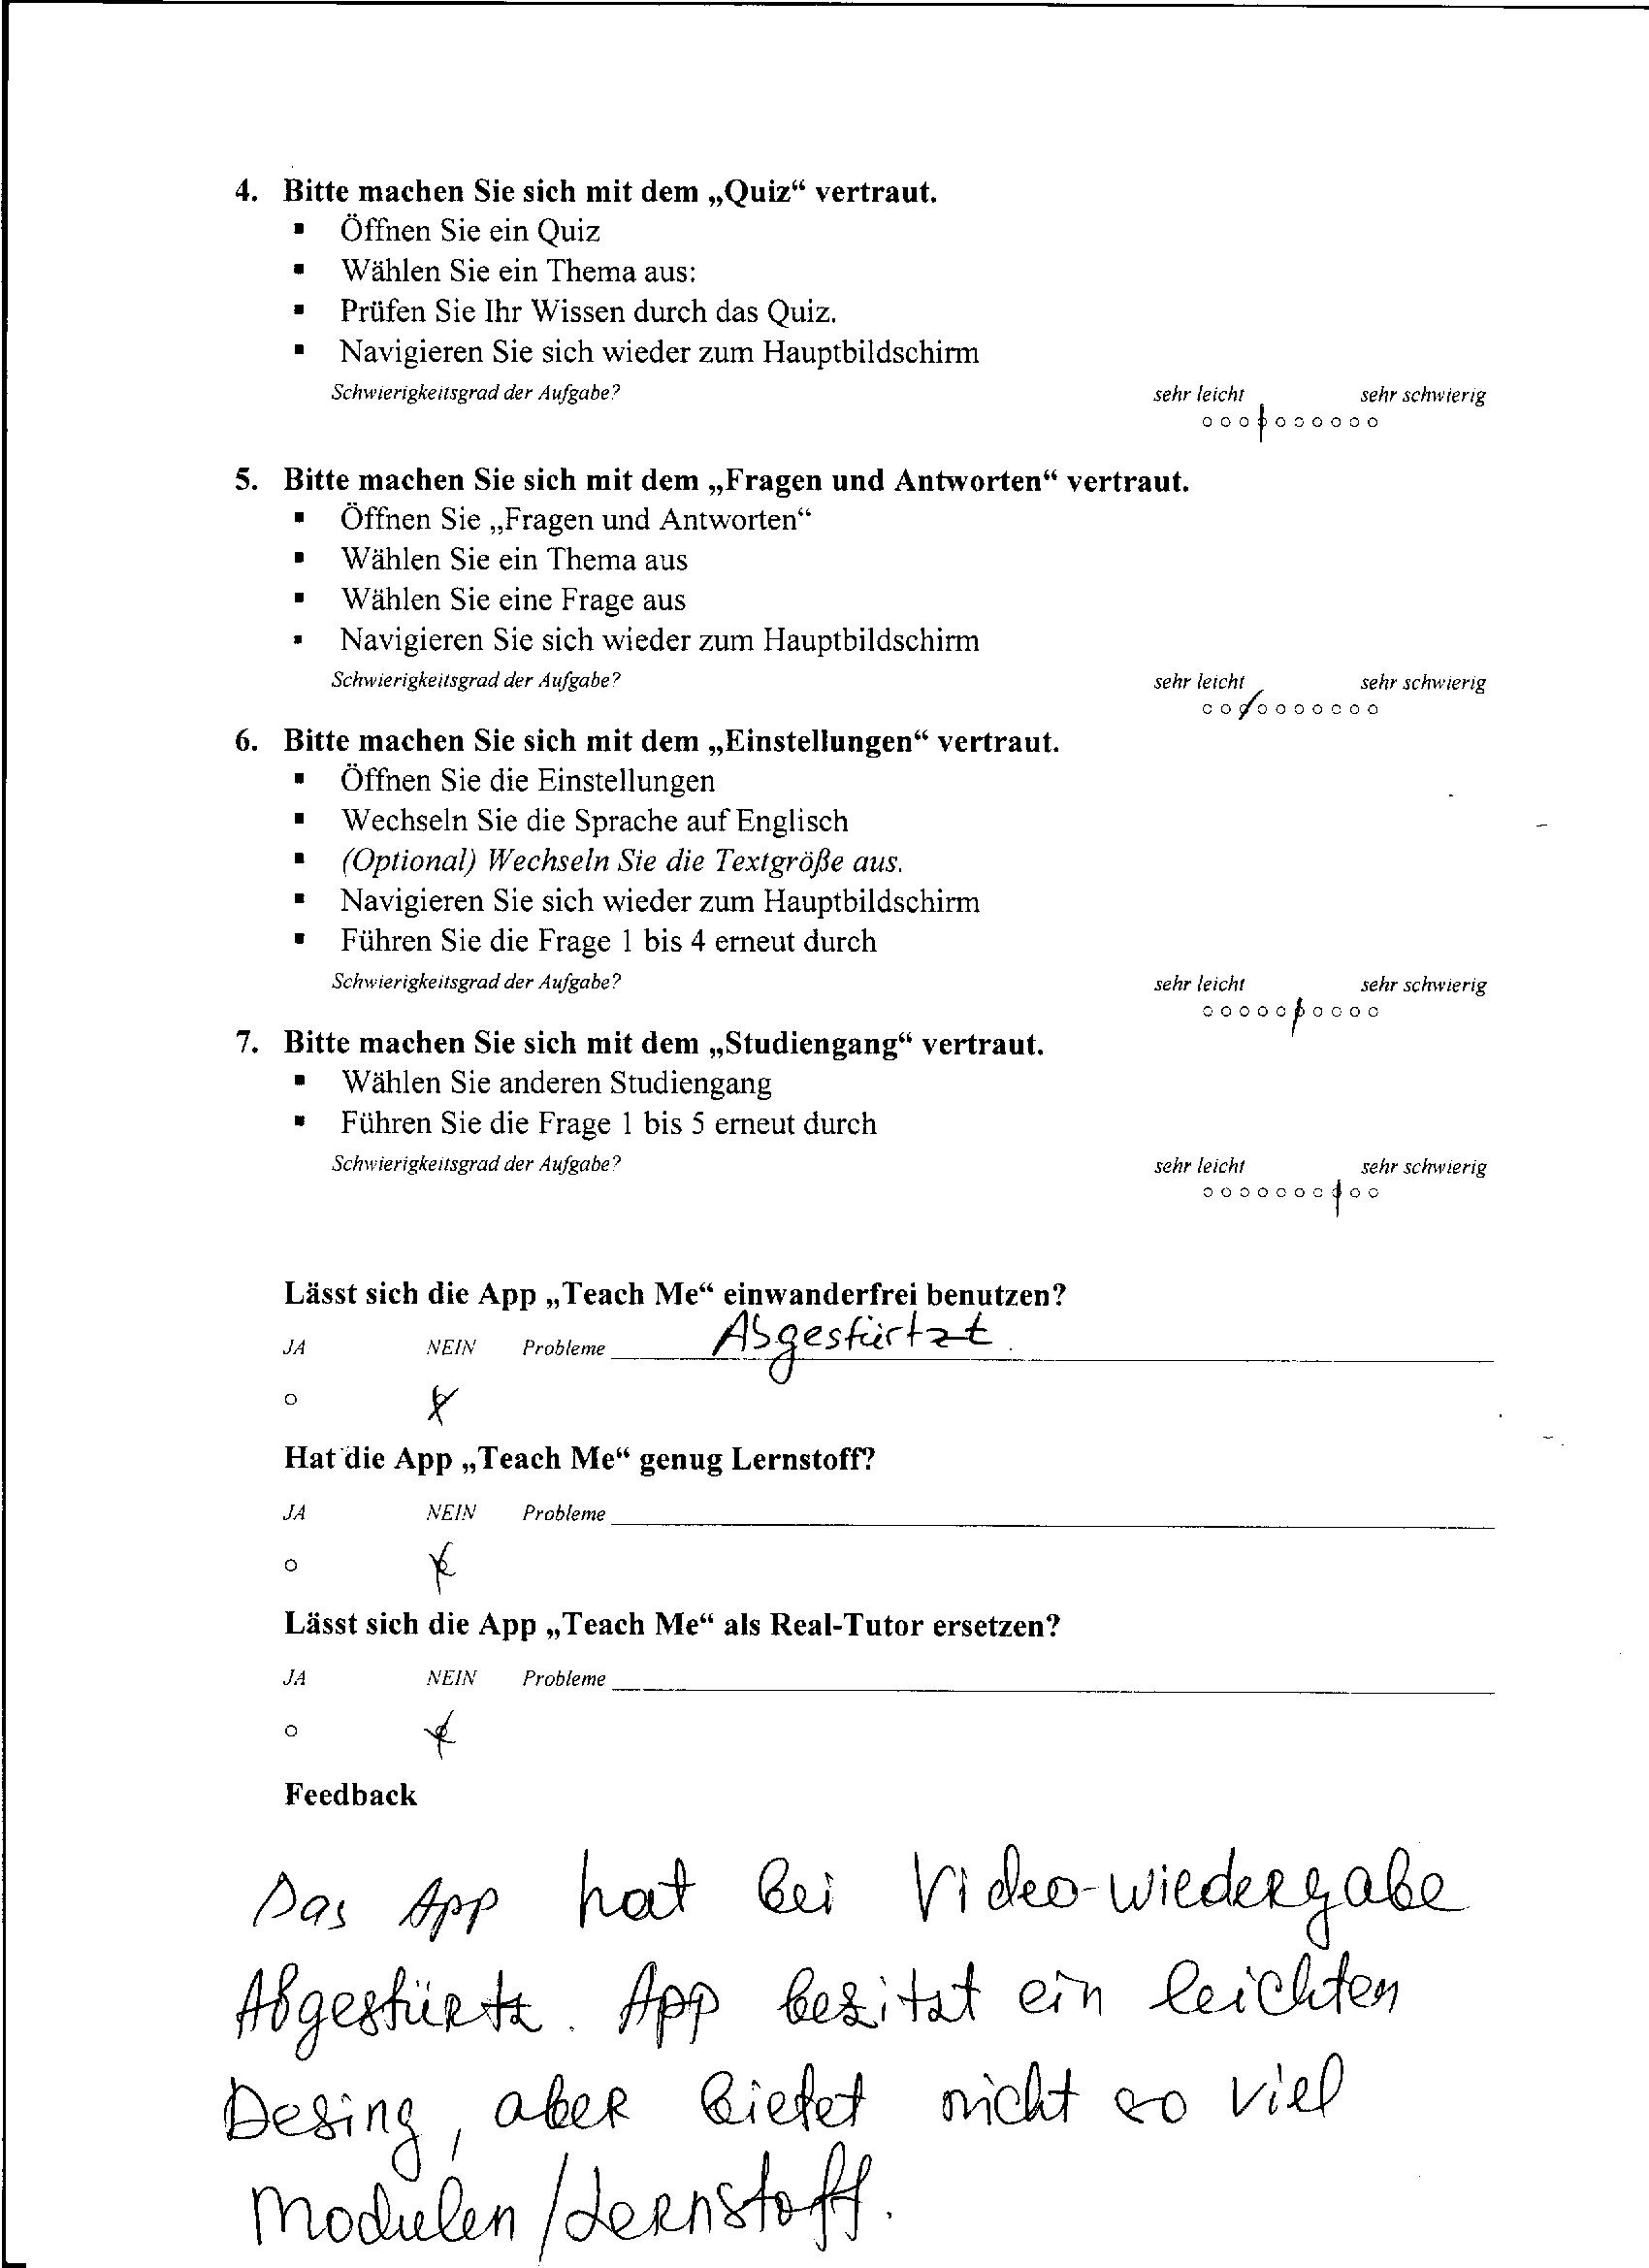 4. Bitte machen Sie sich mit dem „Quiz“ vertraut.
▪ Öffnen Sie ein Quiz
▪ Wählen Sie ein Thema aus:
▪ Prüfen Sie Ihr Wissen durch das Quiz.
▪ Navigieren Sie sich wieder zum Hauptbildschirm
Schwierigkeitsgrad der Aufgabe? sehr leicht sehr schwierig
○ ○ ○ ○ ○ ○ ○ ○ ○ ○
5. Bitte machen Sie sich mit dem „Fragen und Antworten“ vertraut.
▪ Öffnen Sie „Fragen und Antworten“
▪ Wählen Sie ein Thema aus
▪ Wählen Sie eine Frage aus
▪ Navigieren Sie sich wieder zum Hauptbildschirm
Schwierigkeitsgrad der Aufgabe? sehr leicht sehr schwierig
○ ○ ○ ○ ○ ○ ○ ○ ○ ○
6. Bitte machen Sie sich mit dem „Einstellungen“ vertraut.
▪ Öffnen Sie die Einstellungen
▪ Wechseln Sie die Sprache auf Englisch
▪ (Optional) Wechseln Sie die Textgröße aus.
▪ Navigieren Sie sich wieder zum Hauptbildschirm
▪ Führen Sie die Frage 1 bis 4 erneut durch
Schwierigkeitsgrad der Aufgabe? sehr leicht sehr schwierig
○ ○ ○ ○ ○ ○ ○ ○ ○ ○
7. Bitte machen Sie sich mit dem „Studiengang“ vertraut.
▪ Wählen Sie anderen Studiengang
▪ Führen Sie die Frage 1 bis 5 erneut durch
Schwierigkeitsgrad der Aufgabe? sehr leicht sehr schwierig
○ ○ ○ ○ ○ ○ ○ ○ ○ ○
Lässt sich die App „Teach Me“ einwanderfrei benutzen?
JA NEIN Probleme Abgestürtzt.
Hat die App „Teach Me“ genug Lernstoff?
JA NEIN Probleme
Lässt sich die App „Teach Me“ als Real-Tutor ersetzen?
JA NEIN Probleme
Feedback
Das App hat bei Video-wiedergabe
Abgestürtz. App besitzt ein leichten
Desing, aber bietet nicht so viel
Modulen/Lernstoff.